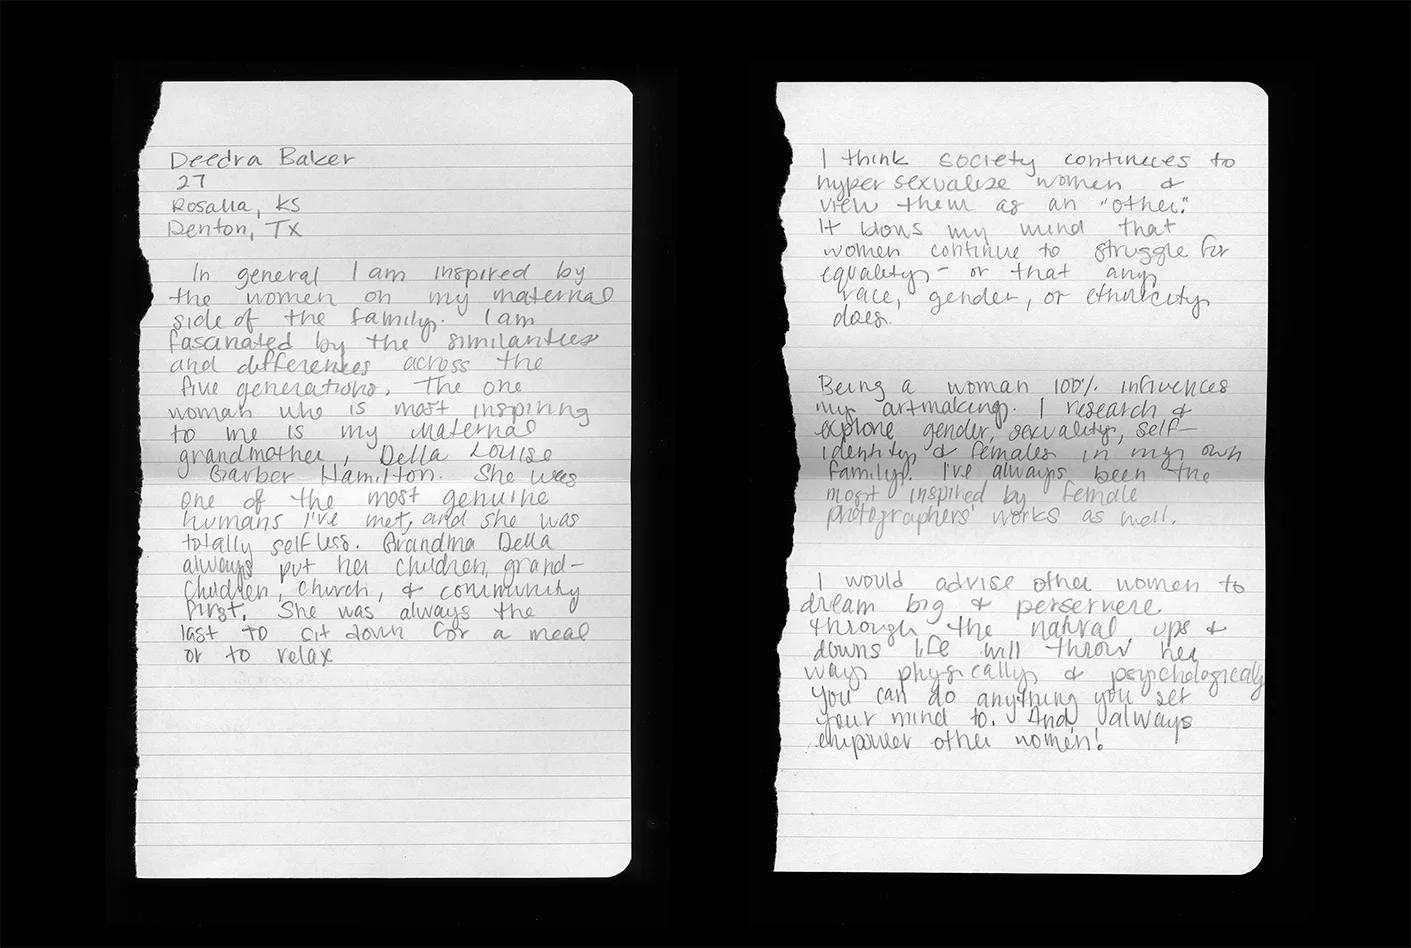 Deedra Baker
27
Rosalia, KS
Denton, TX
In general I am inspired by
the women on my maternal
side of the family. I am
fascinated by the similarities
and differences across the
five generations. The one
woman who is most inspiring
to me is my maternal
grandmother, Della Louise
Garber Hamilton. She was
one of the most genuine
humans I've met, and she was
totally selfless. Grandma Della
always put her children, grand-
children, church, & community
first. She was always the
last to sit down for a meal
or to relax
I think society continues to
hyper sexualize women &
view them as an "other."
It blows my mind that
women continue to struggle for
equality - or that any
race, gender, or ethnicity
does.
Being a woman 100% influences
my artmaking. I research &
explore gender, sexuality, self-
identity & females in my own
family. I've always been the
most inspired by female
photographers' works as well.
I would advise other women to
dream big & perservere
through the natural ups &
downs life will throw her
way physically & psychologically
You can do anything you set
your mind to. And always
empower other women!